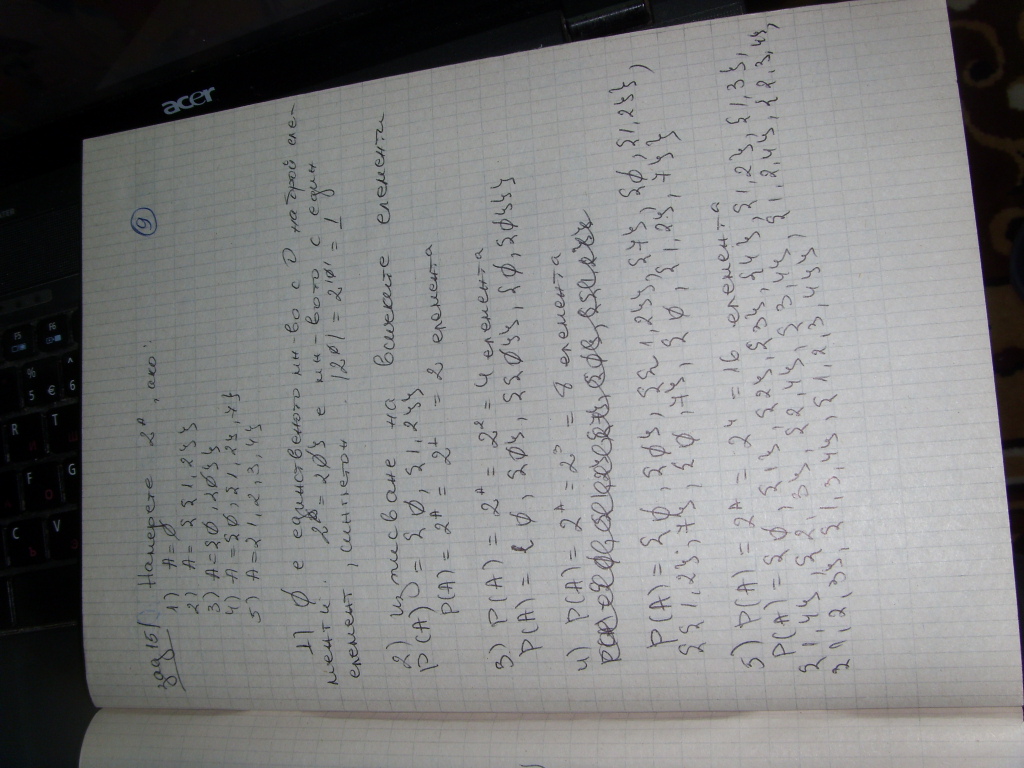 acer
9
зад 15/ Намерете 2ᴬ, ако:
1) A = ∅
2) A = {{1,2}}
3) A = {∅,{∅}}
4) A = {∅,{1,2},7}
5) A = {1,2,3,4}
1) ∅ е единственото мн-во с 0 на брой еле-
менти. 2^∅ = {∅} е мн-вото с един
елемент, синглетон. |2^∅| = 2^|∅| = 1
2) изписване на всичките елементи
P(A) = {∅,{1,2}}
P(A) = 2ᴬ = 2¹ = 2 елемента
3) P(A) = 2ᴬ = 2² = 4 елемента
P(A) = {∅,{∅},{{∅}},{∅,{∅}}}
4) P(A) = 2ᴬ = 2³ = 8 елемента
P(A) = {∅,{∅},{{1,2}},{7},{∅,{1,2}},
{{1,2},7},{∅,7},{∅,{1,2},7}}
5) P(A) = 2ᴬ = 2⁴ = 16 елемента
P(A) = {∅,{1},{2},{3},{4},{1,2},{1,3},
{1,4},{2,3},{2,4},{3,4},{1,2,4},{2,3,4},
{1,2,3},{1,3,4},{1,2,3,4}},